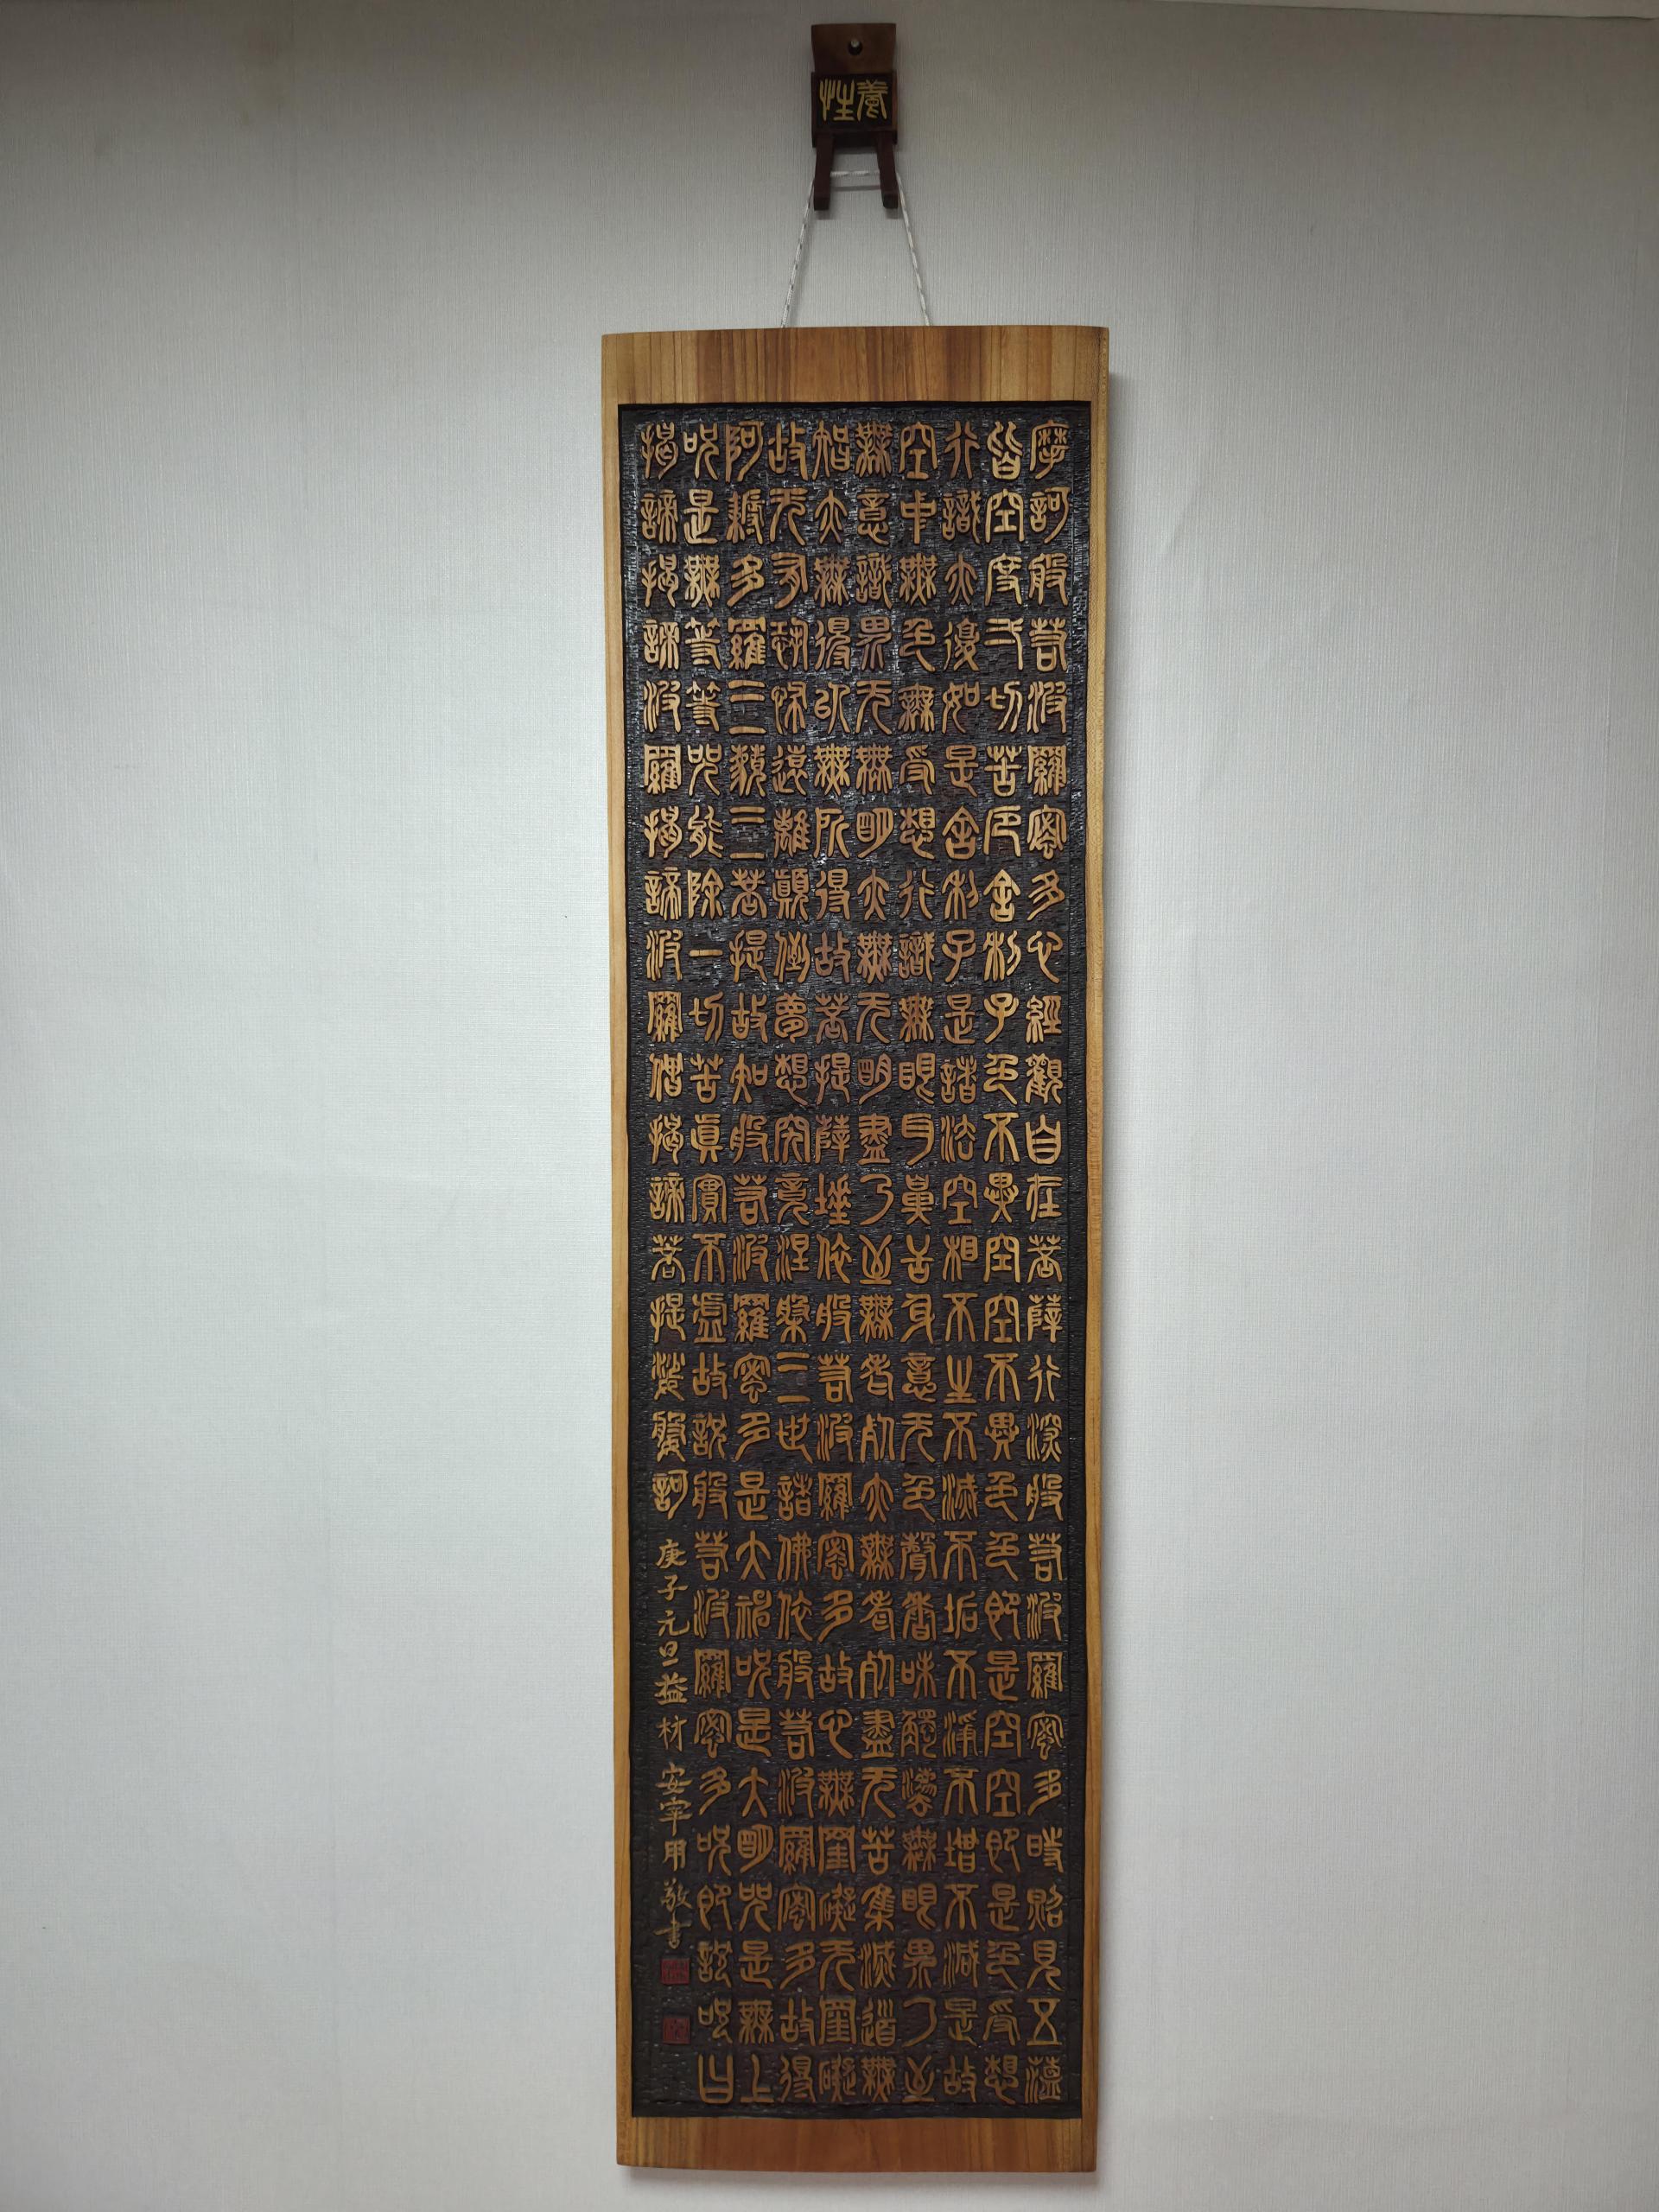 養性
摩訶般若波羅蜜多心經觀自在菩薩行深般若波羅蜜多時照見五蘊
皆空度一切苦厄舍利子色不異空空不異色色即是空空即是色受想
行識亦復如是舍利子是諸法空相不生不滅不垢不淨不增不減是故
空中無色無受想行識無眼耳鼻舌身意无色聲香味觸法無眼界乃至
無意識界无無明亦無无明盡乃至無老死亦無老死盡无苦集滅道無
智亦無得以無所得故菩提薩埵依般若波羅蜜多故心無罣礙无罣礙
故无有恐怖遠離顛倒夢想究竟涅槃三世諸佛依般若波羅蜜多故得
阿耨多羅三藐三菩提故知般若波羅蜜多是大神呪是大明呪是無上
呪是無等等呪能除一切苦眞實不虛故說般若波羅蜜多呪即說呪曰
揭諦揭諦波羅揭諦波羅僧揭諦菩提娑婆訶 庚子元旦益材安宰用敬書